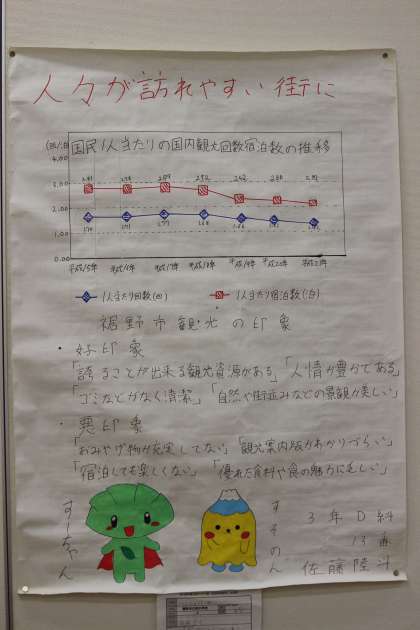 人々が訪れやすい街に
国民1人当たりの国内観光回数宿泊数の推移
(回/泊)
4.00
3.00
2.00
1.00
0.00
平成15年 平成16年 平成17年 平成18年 平成19年 平成20年 平成21年
1人当たり回数(回) 1人当たり宿泊数(泊)
裾野市観光の印象
・好印象
「誇ることが出来る観光資源がある」「人情が豊かである」
「ゴミなどがなく清潔」「自然や街並みなどの景観が美しい」
・悪印象
「おみやげ物が充実してない」「観光案内版がわかりづらい」
「宿泊しても楽しくない」「優れた食料や食の魅力に乏しい」
すーちゃん
すそのん
3年D組
13番
佐藤陸斗